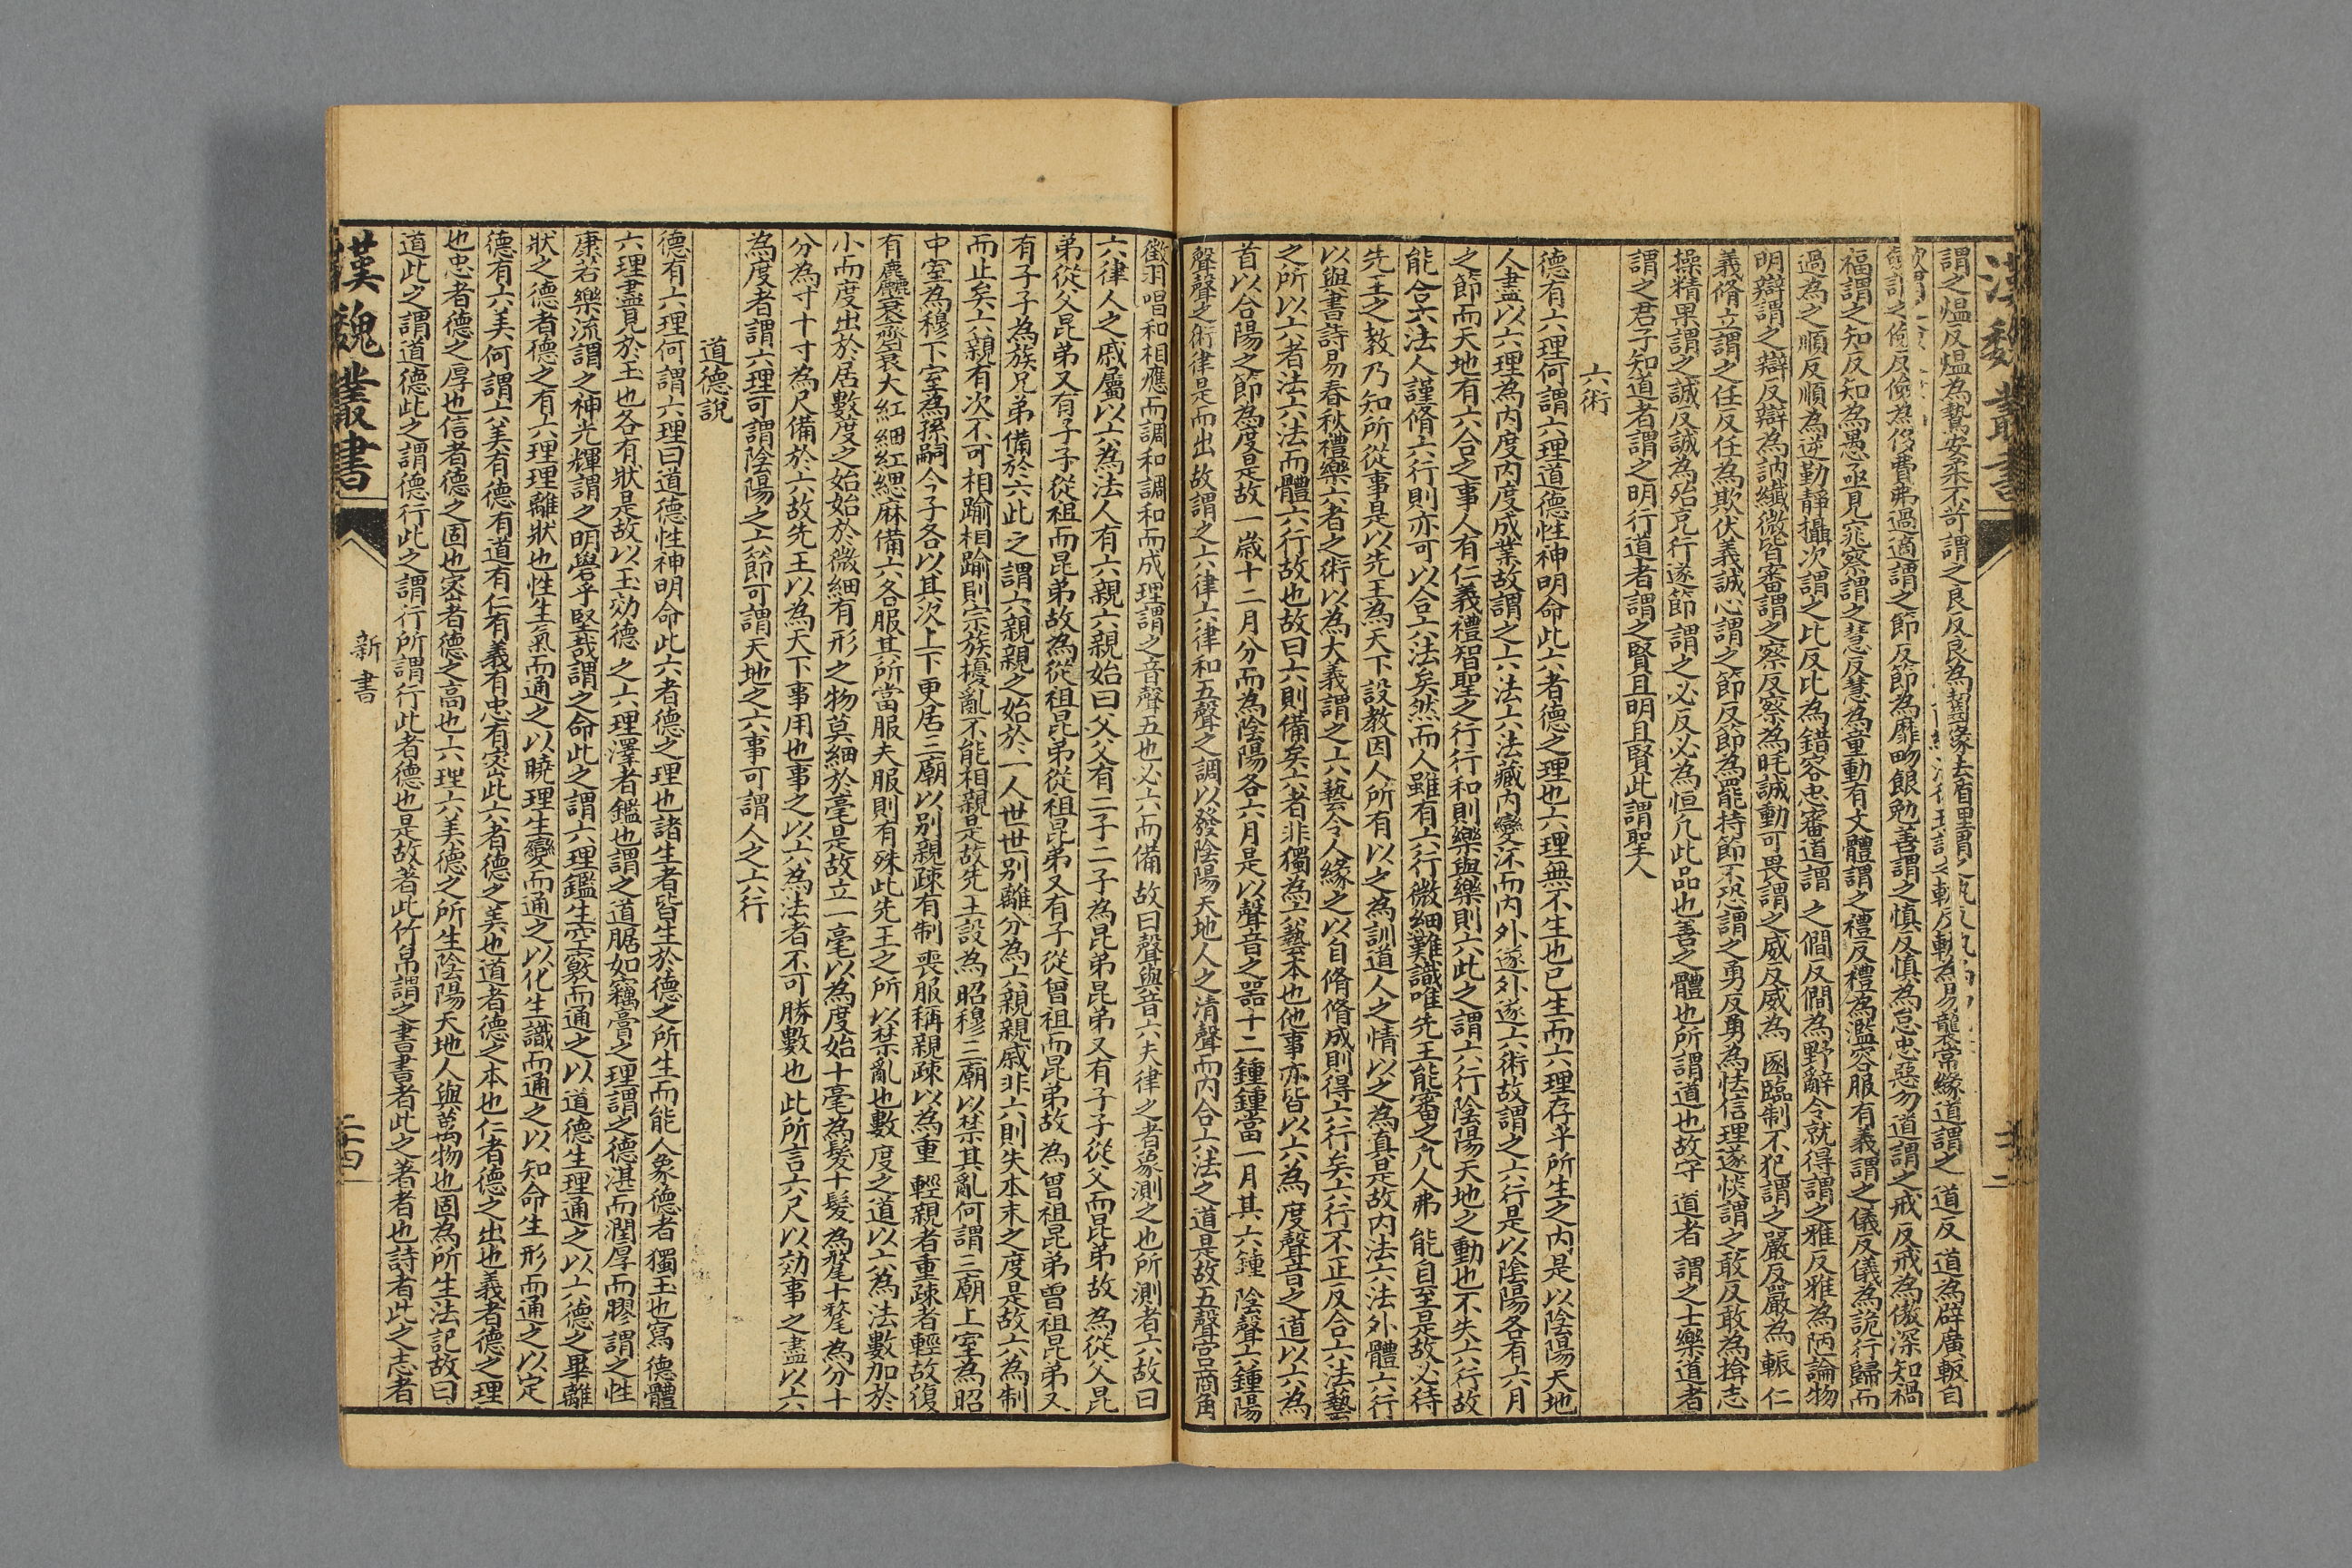 漢魏叢書
謂之熅反熅為鷙安柔不苛謂之良反良為齧緣法循理謂之軌
緣道謂之道反道為辟廣較自
儉反儉為侈費弗過適謂之節反節為靡僶俛勉善謂之慎反慎為怠忠惡勿道謂之戒反戒為傲深知禍
福謂之知反知為愚亟見窕察謂之慧反慧為童動有文體謂之禮反禮為濫容服有義謂之儀反儀為詭行歸而
過為之順反順為逆動靜攝次謂之比反比為錯容忠審道謂之僩反僩為野辭令就得謂之雅反雅為陋論物
明辯謂之辯反辯為訥纖微皆審謂之察反察為旄誠動可畏謂之威反威為圂臨制不犯謂之嚴反嚴為輭仁
義脩立謂之任反任為欺伏義誠心謂之節反節為罷持節不恐謂之勇反勇為怯信理遂惔謂之敢反敢為揜志
操精果謂之誠反誠為殆克行遂節謂之必反必為恒凡此品也善之體也所謂道也故守道者謂之士樂道者
謂之君子知道者謂之明行道者謂之賢且明且賢此謂聖人
六術
德有六理何謂六理道德性神明命此六者德之理也六理無不生也已生而六理存乎所生之內是以陰陽天地
人盡以六理為內度內度成業故謂之六法六法藏內變汦而內外遂外遂六術故謂之六行是以陰陽各有六月
之節而天地有六合之事人有仁義禮智聖之行行和則樂與樂則六此之謂六行陰陽天地之動也不失六行故
能合六法人謹脩六行則亦可以合六法矣然而人雖有六行微細難識唯先王能審之凡人弗能自至是故必待
先王之教乃知所從事是以先王為天下設教因人所有以之為訓道人之情以之為真是故內法六法外體六行
以與書詩易春秋禮樂六者之術以為大義謂之六藝令人緣之以自脩脩成則得六行矣六行不正反合六法藝
之所以六者法六法而體六行故也故曰六則備矣六者非獨為六藝本也他事亦皆以六為度聲音之道以六為
首以合陽之節為度是故一歲十二月分而為陰陽各六月是以聲音之器十二鍾鍾當一月其六鍾陰聲六鍾陽
聲聲之術律是而出故謂之六律六律和五聲之調以發陰陽天地人之清聲而內合六法之道是故五聲宮商角
徵羽唱和相應而調和調和而成理謂之音聲五也必六而備故曰聲與音六夫律之者象測之也所測者六故曰
六律人之戚屬以六為法人有六親六親始曰父父有二子二子為昆弟昆弟又有子子從父而昆弟故為從父昆
弟從父昆弟又有子子從祖而昆弟故為從祖昆弟從祖昆弟又有子從曾祖而昆弟故為曾祖昆弟曾祖昆弟又
有子子為族兄弟備於六此之謂六親親之始於一人世世別離分為六親親戚非六則失本末之度是故六為制
而止矣六親有次不可相踰相踰則宗族擾亂不能相親是故先王設為昭穆三廟以禁其亂何謂三廟上室為昭
中室為穆下室為孫嗣令子各以其次上下更居三廟以別親疎有制喪服稱親疎以為重輕親者重疎者輕故復
有麤衰齊衰大紅細紅緦麻備六各服其所當服夫服則有殊此先王之所以禁亂也數度之道以六為法數加於
小而度出於居數度之始始於微細有形之物莫細於毫是故立一毫以為度始十毫為髮十髮為氂十氂為分十
分為寸十寸為尺備於六故先王以為天下事用也事之以六為法者不可勝數也此所言六尺以効事之盡以六
為度者謂六理可謂陰陽之六節可謂天地之六事可謂人之六行
道德說
德有六理何謂六理曰道德性神明命此六者德之理也諸生者皆生於德之所生而能人象德者獨玉也寫德體
六理盡見於玉也各有狀是故以玉効德之六理澤者鑑也謂之道腒如竊膏之理謂之德湛而潤厚而膠謂之性
康若樂流謂之神光輝謂之明礐乎堅哉謂之命此之謂六理鑑生空竅而通之以道德生理通之以六德之畢離
狀之德者德之有六理理離狀也性生氣而通之以曉理生變而通之以化生識而通之以知命生形而通之以定
德有六美何謂六美有德有道有仁有義有忠有密此六者德之美也道者德之本也仁者德之出也義者德之理
也忠者德之厚也信者德之固也密者德之高也六理六美德之所生陰陽天地人與萬物也固為所生法記故曰
道此之謂道德此之謂德行此之謂行所謂行此者德也是故著此竹帛謂之書書者此之著者也詩者此之志者
漢魏叢書
新書
二十四